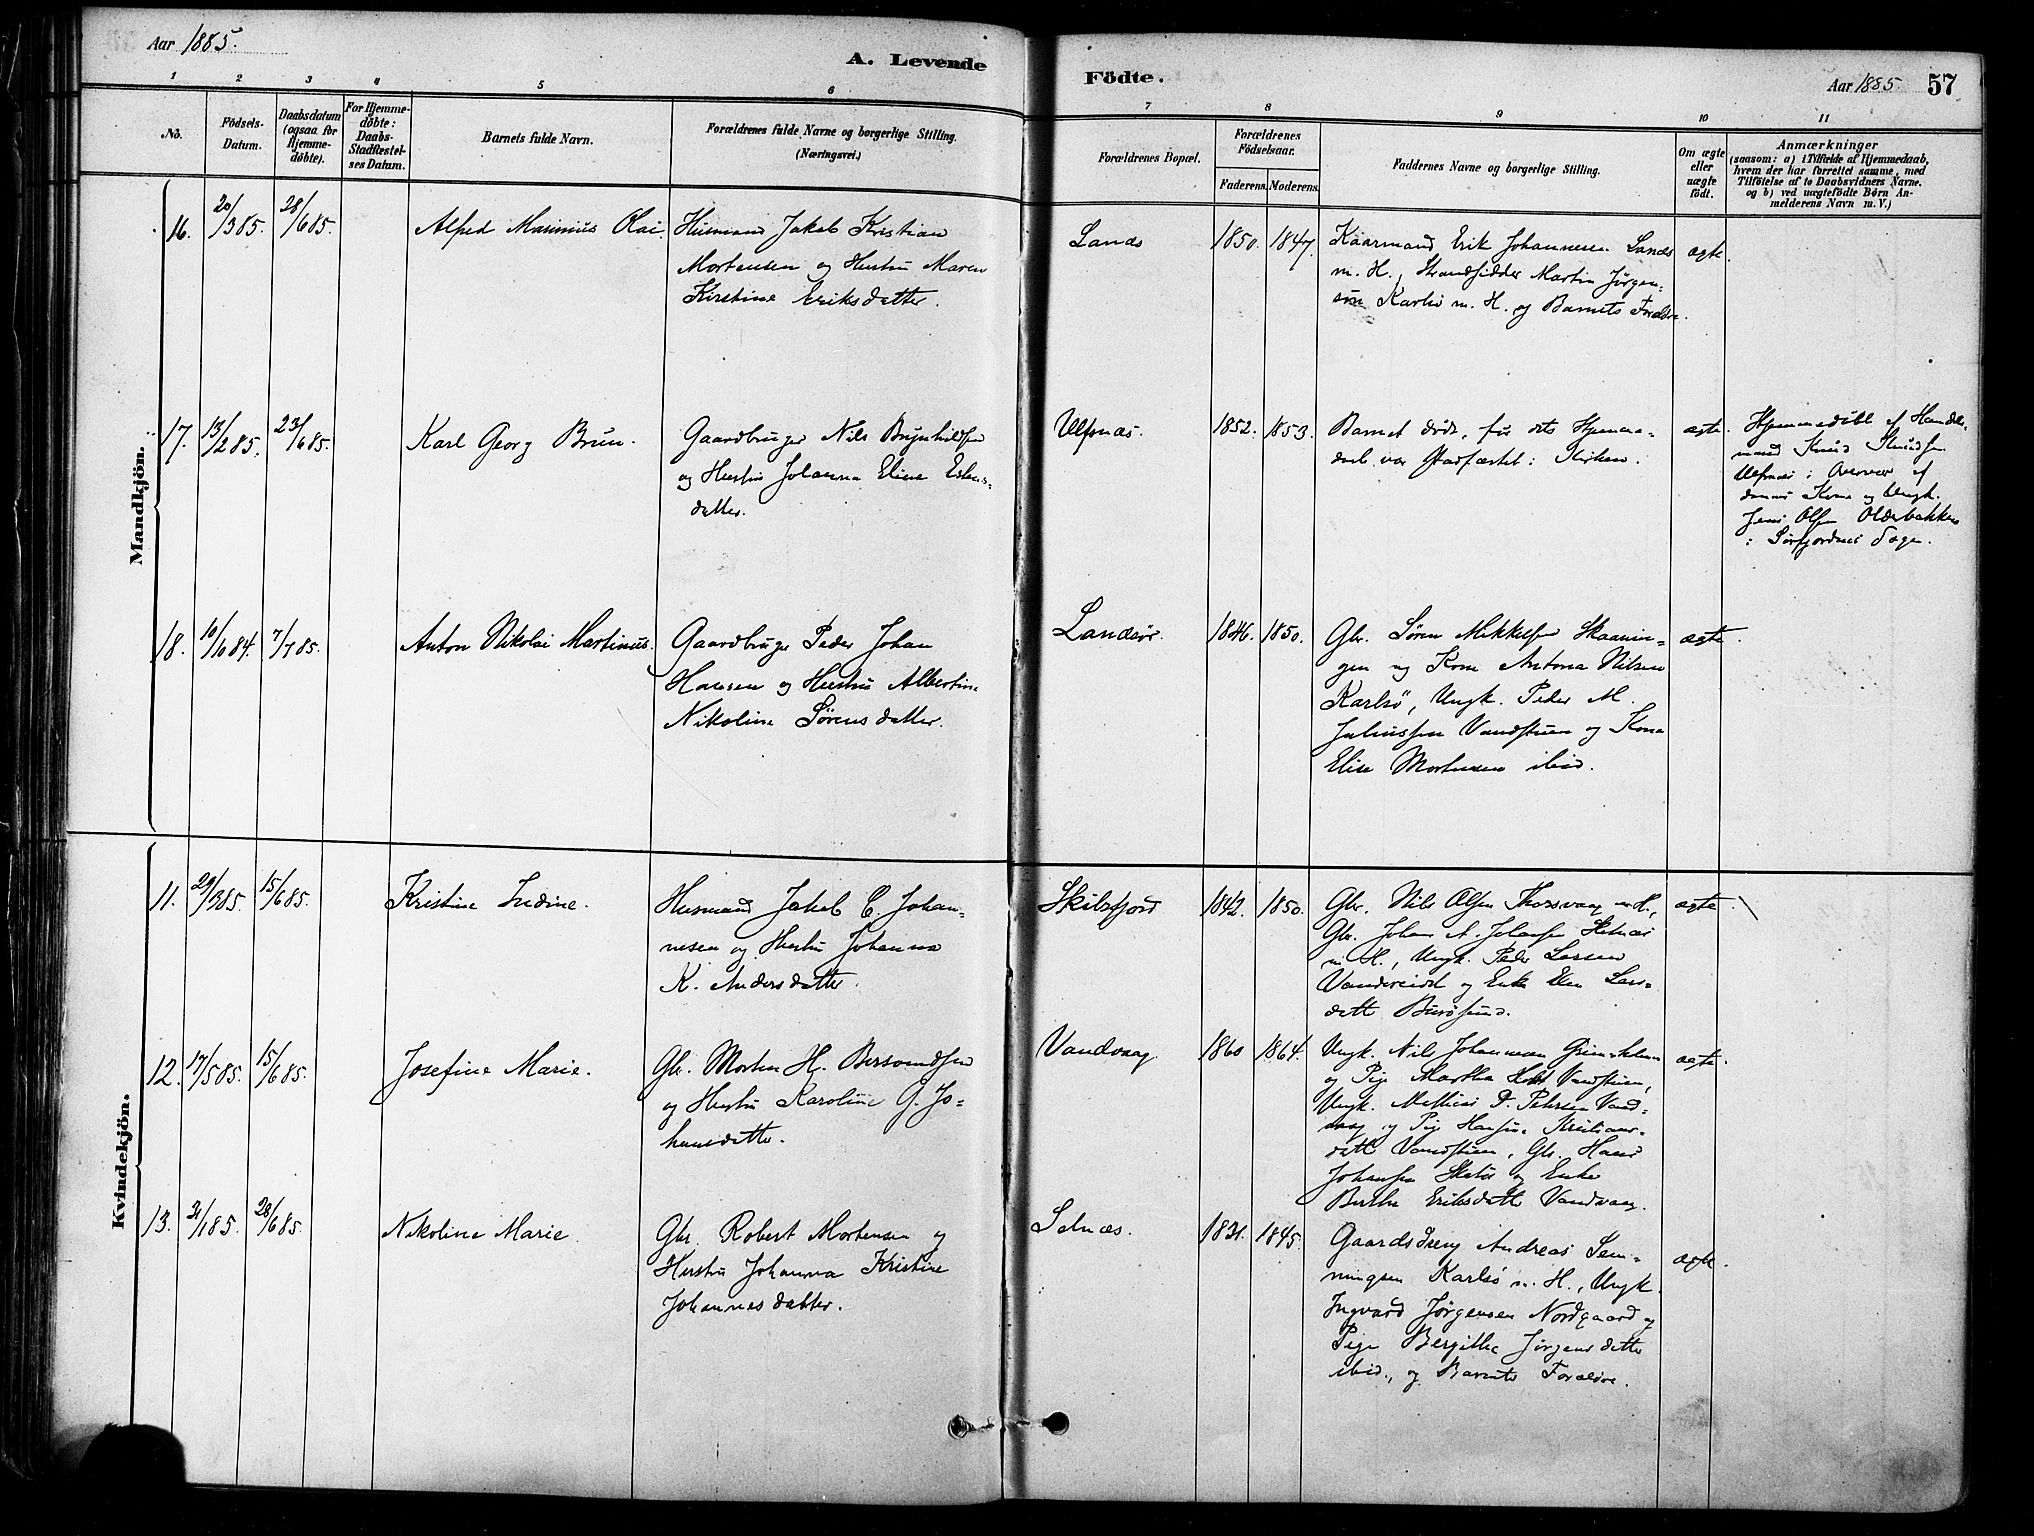 Aar 1885.
A. Levende
Födte.
Aar 1885.
57
1 2 3 4 5 6
7 8 9 10 11
No.
Födsels-
Datum.
Daabsdatum
(ogsaa for
Hjemme-
döbte).
For Hjemme-
döbte:
Daabs-
Stadfæstel-
ses Datum.
Barnets fulde Navn.
Forældrenes fulde Navne og borgerlige Stilling.
(Næringsvei.)
Forældrenes Bopæl.
Forældrenes
Födselsaar.
Faderens. Moderens.
Faddernes Navne og borgerlige Stilling.
Om ægte
eller
uægte
födt.
Anmærkninger
(saasom: a) i Tilfælde af Hjemmedaab,
hvem der har forrettet samme, med
Tilföielse af to Daabsvidners Navne.
og b) ved uægtefödte Börn An-
melderens Navn m. V.)
Mandkjön.
16. 20/3 85. 28/6 85.
Alfred Marinius Olai
Husmand Jakob Kristian
Mortensen og Hustru Maren
Kirstine Eriksdatter.
Lanæs
1850. 1847.
Kaarmand Erik Johannesen Lanæs
m. H., Strandsidder Martin Jörgen-
sen Karlsö m. H. og Barnets Forældre.
ægte.
17. 13/2 85. 23/6 85.
Karl Georg Brun.
Gaardbruger Nils Brynhildsen
og Hustru Johanna Eline Estens-
datter.
Ulfsnæs.
1852. 1853.
Barnet döde, för dets Hjemme-
daab var stadfæstet i Kirken.
ægte.
Hjemmedöbt af Handels-
mand Knud Knudsen
Ulfsnæs i Overvær af
dennes Kone og Ungk.
Jens Olsen Olderbakken
i Sörfjordens Sogn.
18. 16/6 84. 7/7 85.
Anton Nikolai Martinus.
Gaardbruger Peder Johan
Hansen og Hustru Albertine
Nikoline Sörensdatter.
Landsör.
1846. 1850.
Gbr. Sören Mikkelsen Skaanin-
gen og Kone Antona Nilsen
Karlsö, Ungk. Peder M.
Juliussen Vandstuen og Kone
Elise Mortensen ibid.
ægte.
Kvindekjön.
11. 29/3 85. 15/6 85.
Kristine Indine.
Husmand Jakob C. Johan-
nesen og Hustru Johanna
K. Andersdatter.
Skibsfjord
1842. 1850.
Gbr. Nils Olsen Thorsvaag m. H.,
Gbr. Johan A. Johansen
m H., Ungk. Peder Larsen
Vandereidet og Enke Elen Lars-
datt Burösund.
ægte.
12. 17/5 85. 15/6 85.
Josefine Marie.
Gbr. Morten Hj. Bersvendsen
og Hustru Karoline G. Jo-
hansdatter.
Vandvaag.
1860 1864.
Ungk. Nils Johannesen Grimsholm
og Pige Martha Holst Vandstuen,
Ungk. Mathias P. Petersen Vand-
vaag og Pige Hansine Kristians-
datt Vandstuen, Gbr. Hans
Johansen og Enke
Berthe Eriksdatt Vandvaag.
ægte.
13. 31/1 85. 28/6 85.
Nikoline Marie.
Gbr. Robert Mortensen og
Hustru Johanna Kristine
Johannesdatter.
Selnæs.
1831. 1845.
Gaardsdreng Andreas Sem-
mingsen Karlsö m. H., Ungk.
Ingvard Jörgensen Nordgaard og
Pige Bergitha Jörgensdatter
ibid., og Barnets Forældre.
ægte.